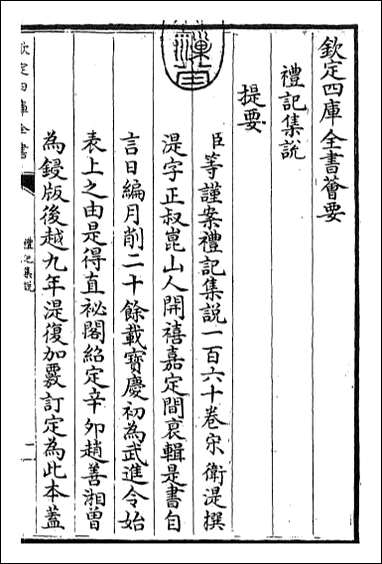 欽定四庫全書薈要
禮記集說
提要
臣等謹案禮記集說一百六十卷宋衛湜撰
湜字正叔崑山人開禧嘉定間裒輯是書自
言日編月削二十餘載寶慶初為武進令始
表上之由是得直祕閣紹定辛夘趙善湘曾
為鋟版後越九年湜復加覈訂定為此本蓋
欽定四庫全書
禮記集說